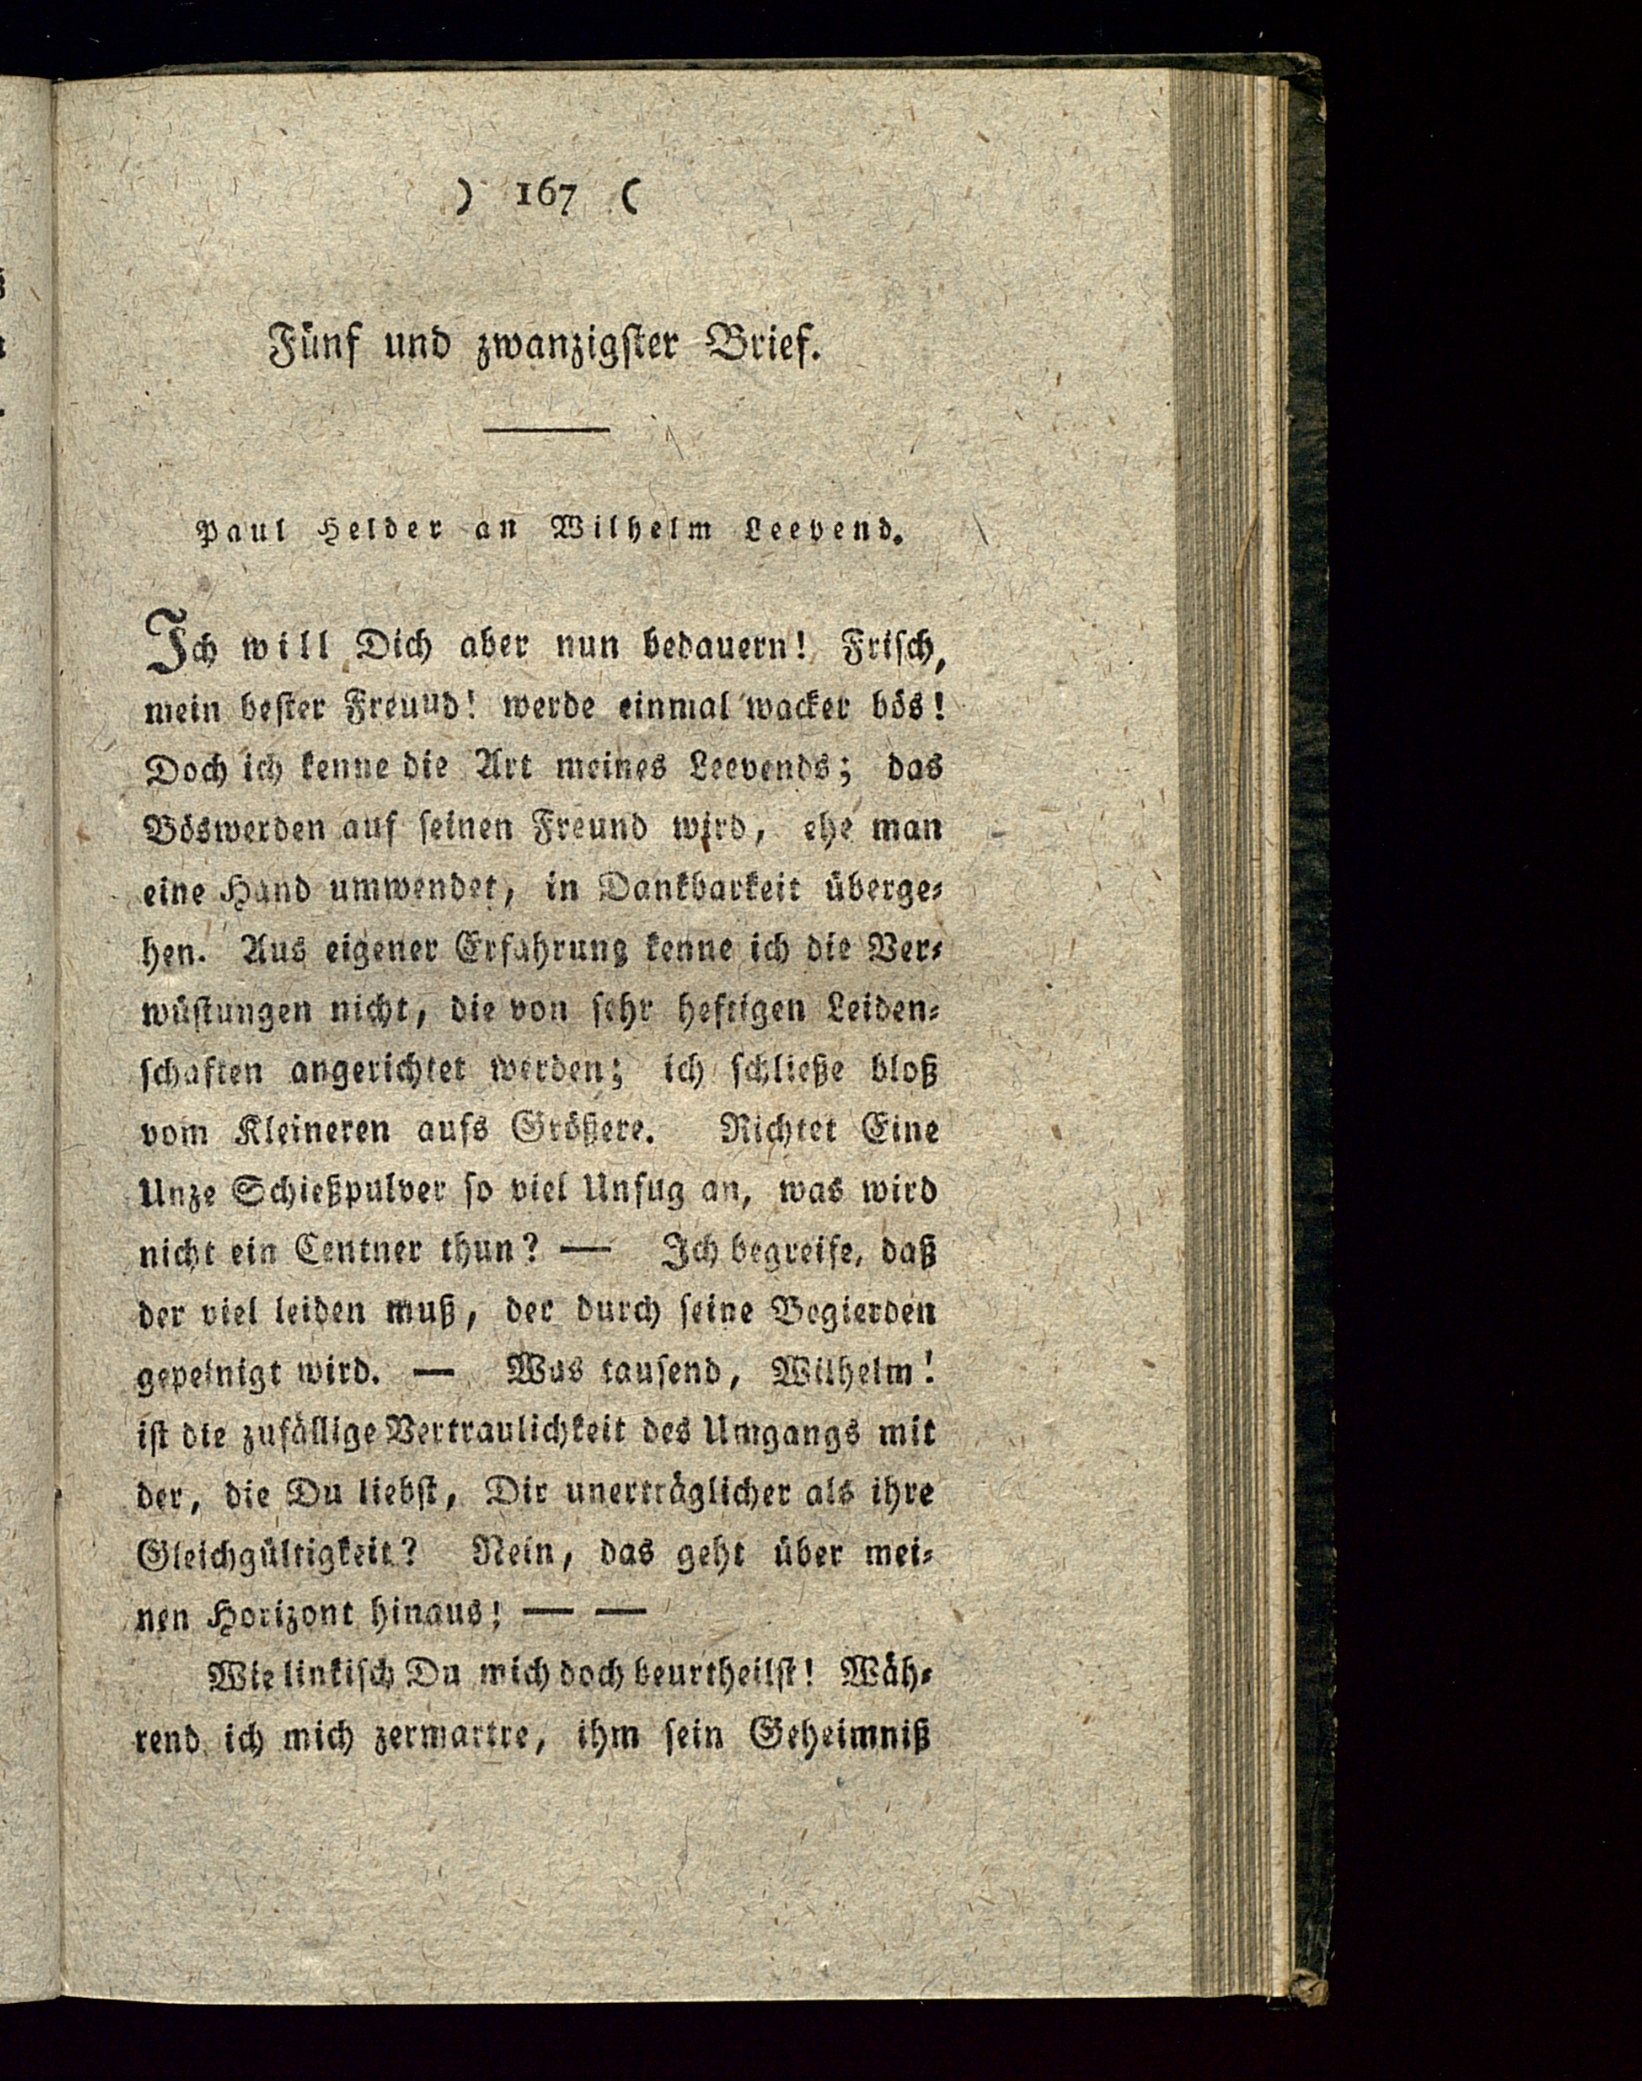 ) 167 (
Fünf und zwanzigster Brief.
Paul Helder an Wilhelm Leevend.
Ich will Dich aber nun bedauern! Frisch,
mein bester Freuud! werde einmal wacker bös!
Doch ich kenne die Art meines Leevends; das
Böswerden auf seinen Freund wird, ehe man
eine Hand umwendet, in Dankbarkeit überge⸗
hen. Aus eigener Erfahrung kenne ich die Ver⸗
wüstungen nicht, die von sehr heftigen Leiden⸗
schaften angerichtet werden; ich schließe bloß
vom Kleineren aufs Größere. Richtet Eine
Unze Schießpulver so viel Unfug an, was wird
nicht ein Centner thun? — Ich begreife, daß
der viel leiden muß, der durch seine Begierden
gepeinigt wird. — Was tausend, Wilhelm!
ist die zufällige Vertraulichkeit des Umgangs mit
der, die Du liebst, Dir unerträglicher als ihre
Gleichgültigkeit? Nein, das geht über mei⸗
nen Horizont hinaus! — —
Wie linkisch Du mich doch beurtheilst! Wäh⸗
rend ich mich zermartre, ihm sein Geheimniß